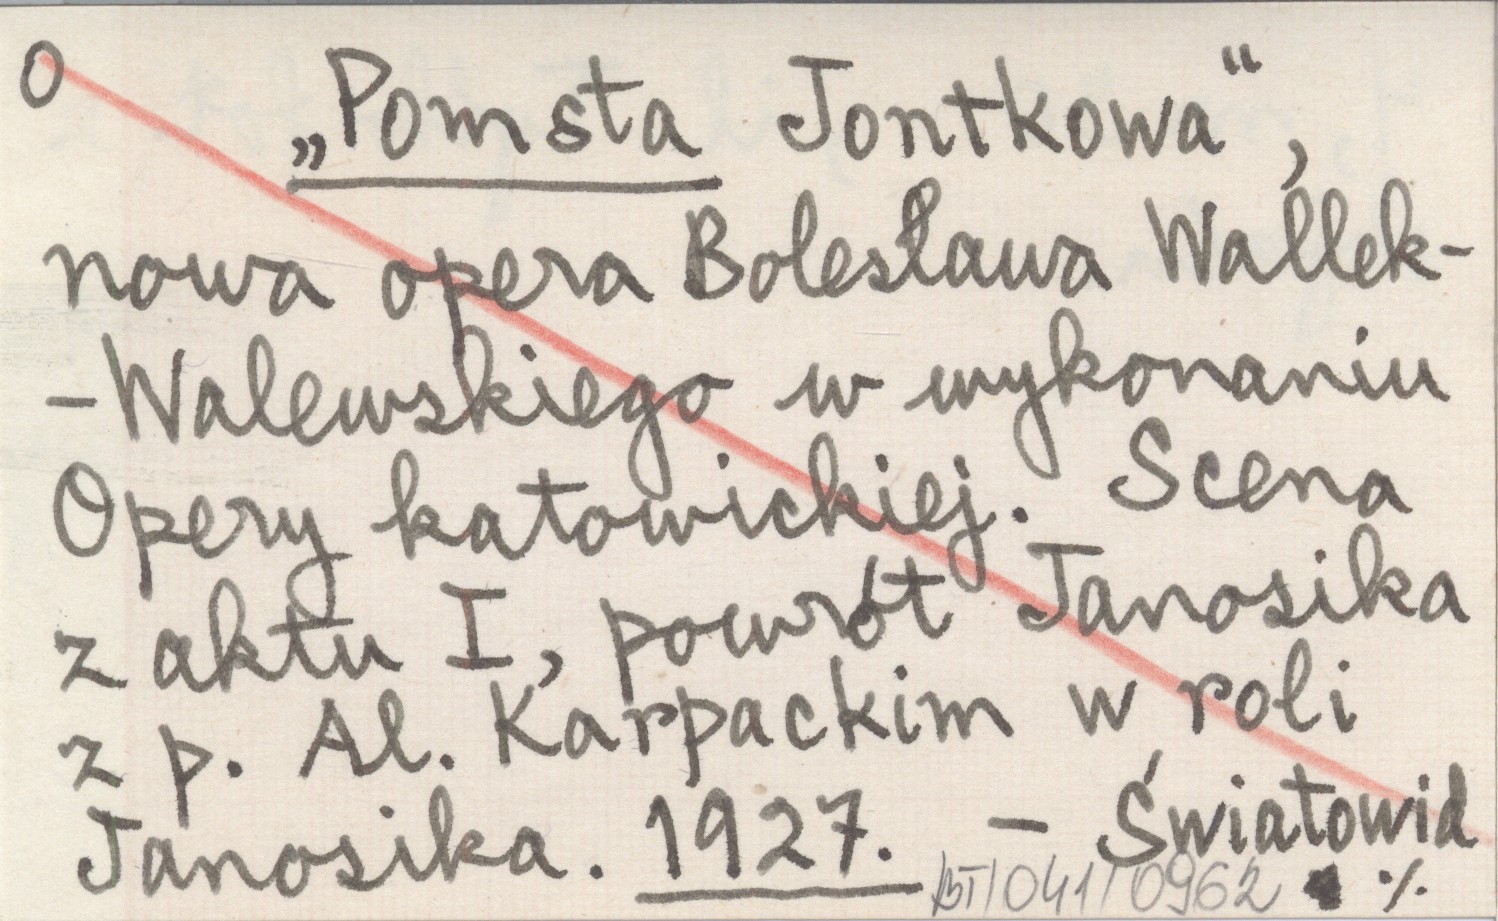 O
„Pomsta Jontkowa“,
nowa opera Bolesława Wallek-
-Walewskiego w wykonaniu
Opery katowickiej. Scena
z aktu I, powrót Janosika
z p. Al. Karpackim w roli
Janosika. 1927. – Światowid
BT/041/0962 ./.